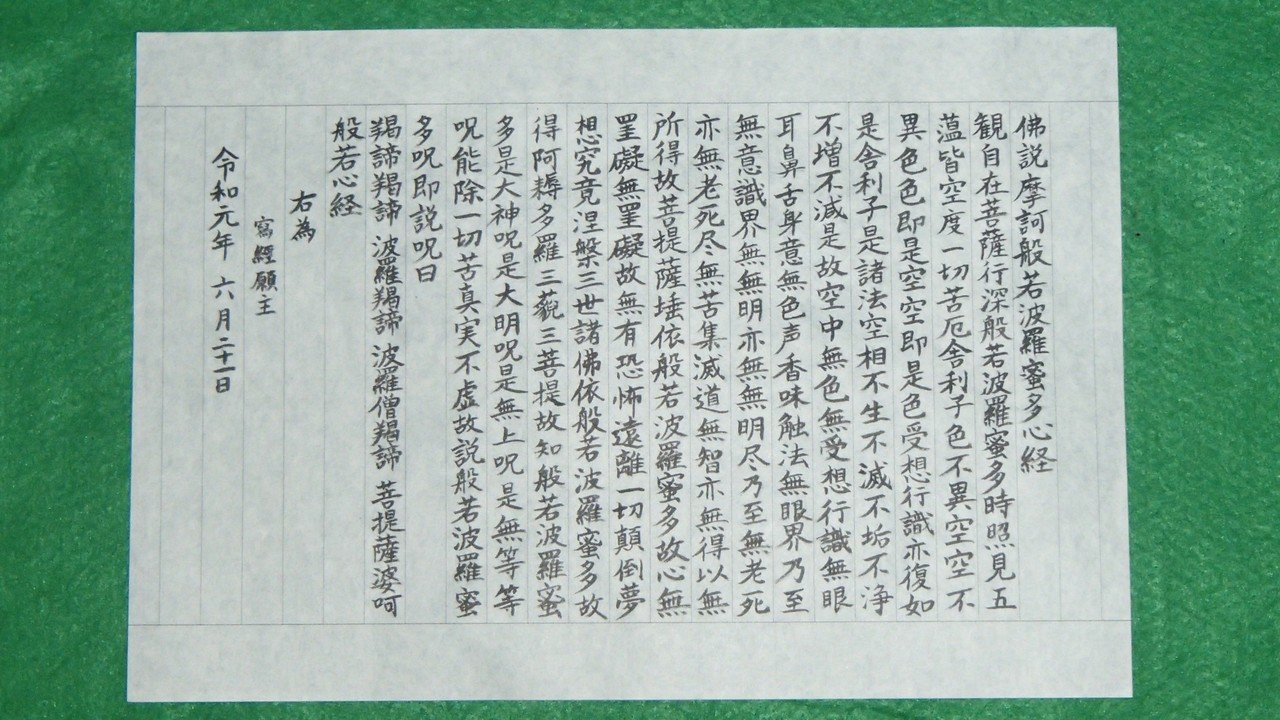 佛説摩訶般若波羅蜜多心経
観自在菩薩行深般若波羅蜜多時照見五
蘊皆空度一切苦厄舎利子色不異空空不
異色色即是空空即是色受想行識亦復如
是舎利子是諸法空相不生不滅不垢不浄
不増不減是故空中無色無受想行識無眼
耳鼻舌身意無色声香味触法無眼界乃至
無意識界無無明亦無無明尽乃至無老死
亦無老死尽無苦集滅道無智亦無得以無
所得故菩提薩埵依般若波羅蜜多故心無
罣礙無罣礙故無有恐怖遠離一切顛倒夢
想究竟涅槃三世諸佛依般若波羅蜜多故
得阿耨多羅三藐三菩提故知般若波羅蜜
多是大神呪是大明呪是無上呪是無等等
呪能除一切苦真実不虚故説般若波羅蜜
多呪即説呪曰
羯諦羯諦 波羅羯諦 波羅僧羯諦 菩提薩婆呵
般若心経
右為
寫經願主
令和元年 六月二十一日